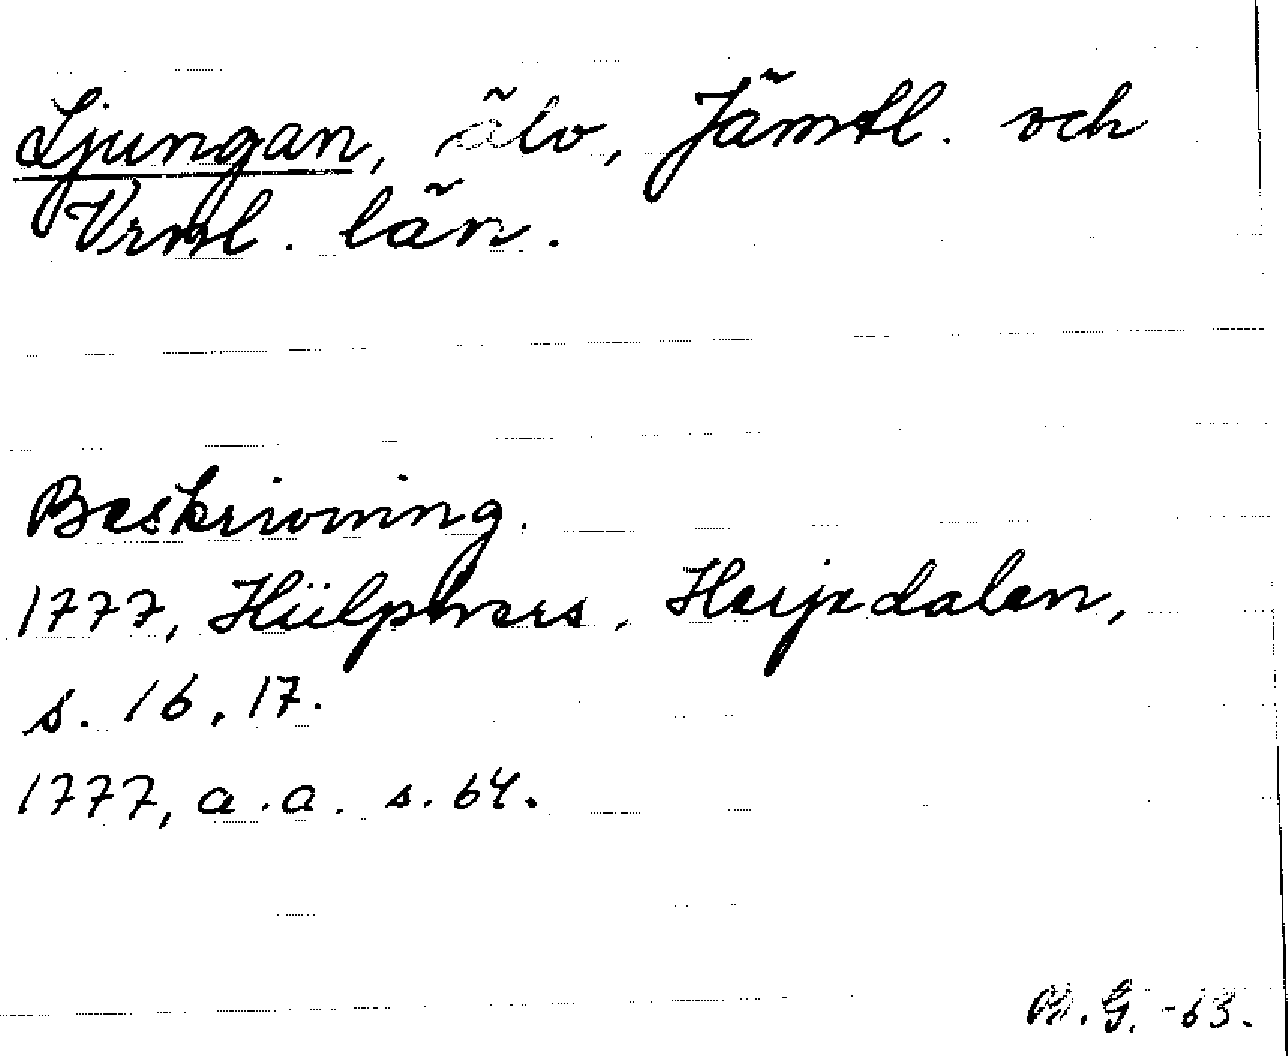 Ljungan, älv, Jämtl. och
Vrml. län.
Beskrivning.
1777, Hülphers, Herjedalen,
s. 16, 17.
1777, a.a. s. 64.
G. -63.